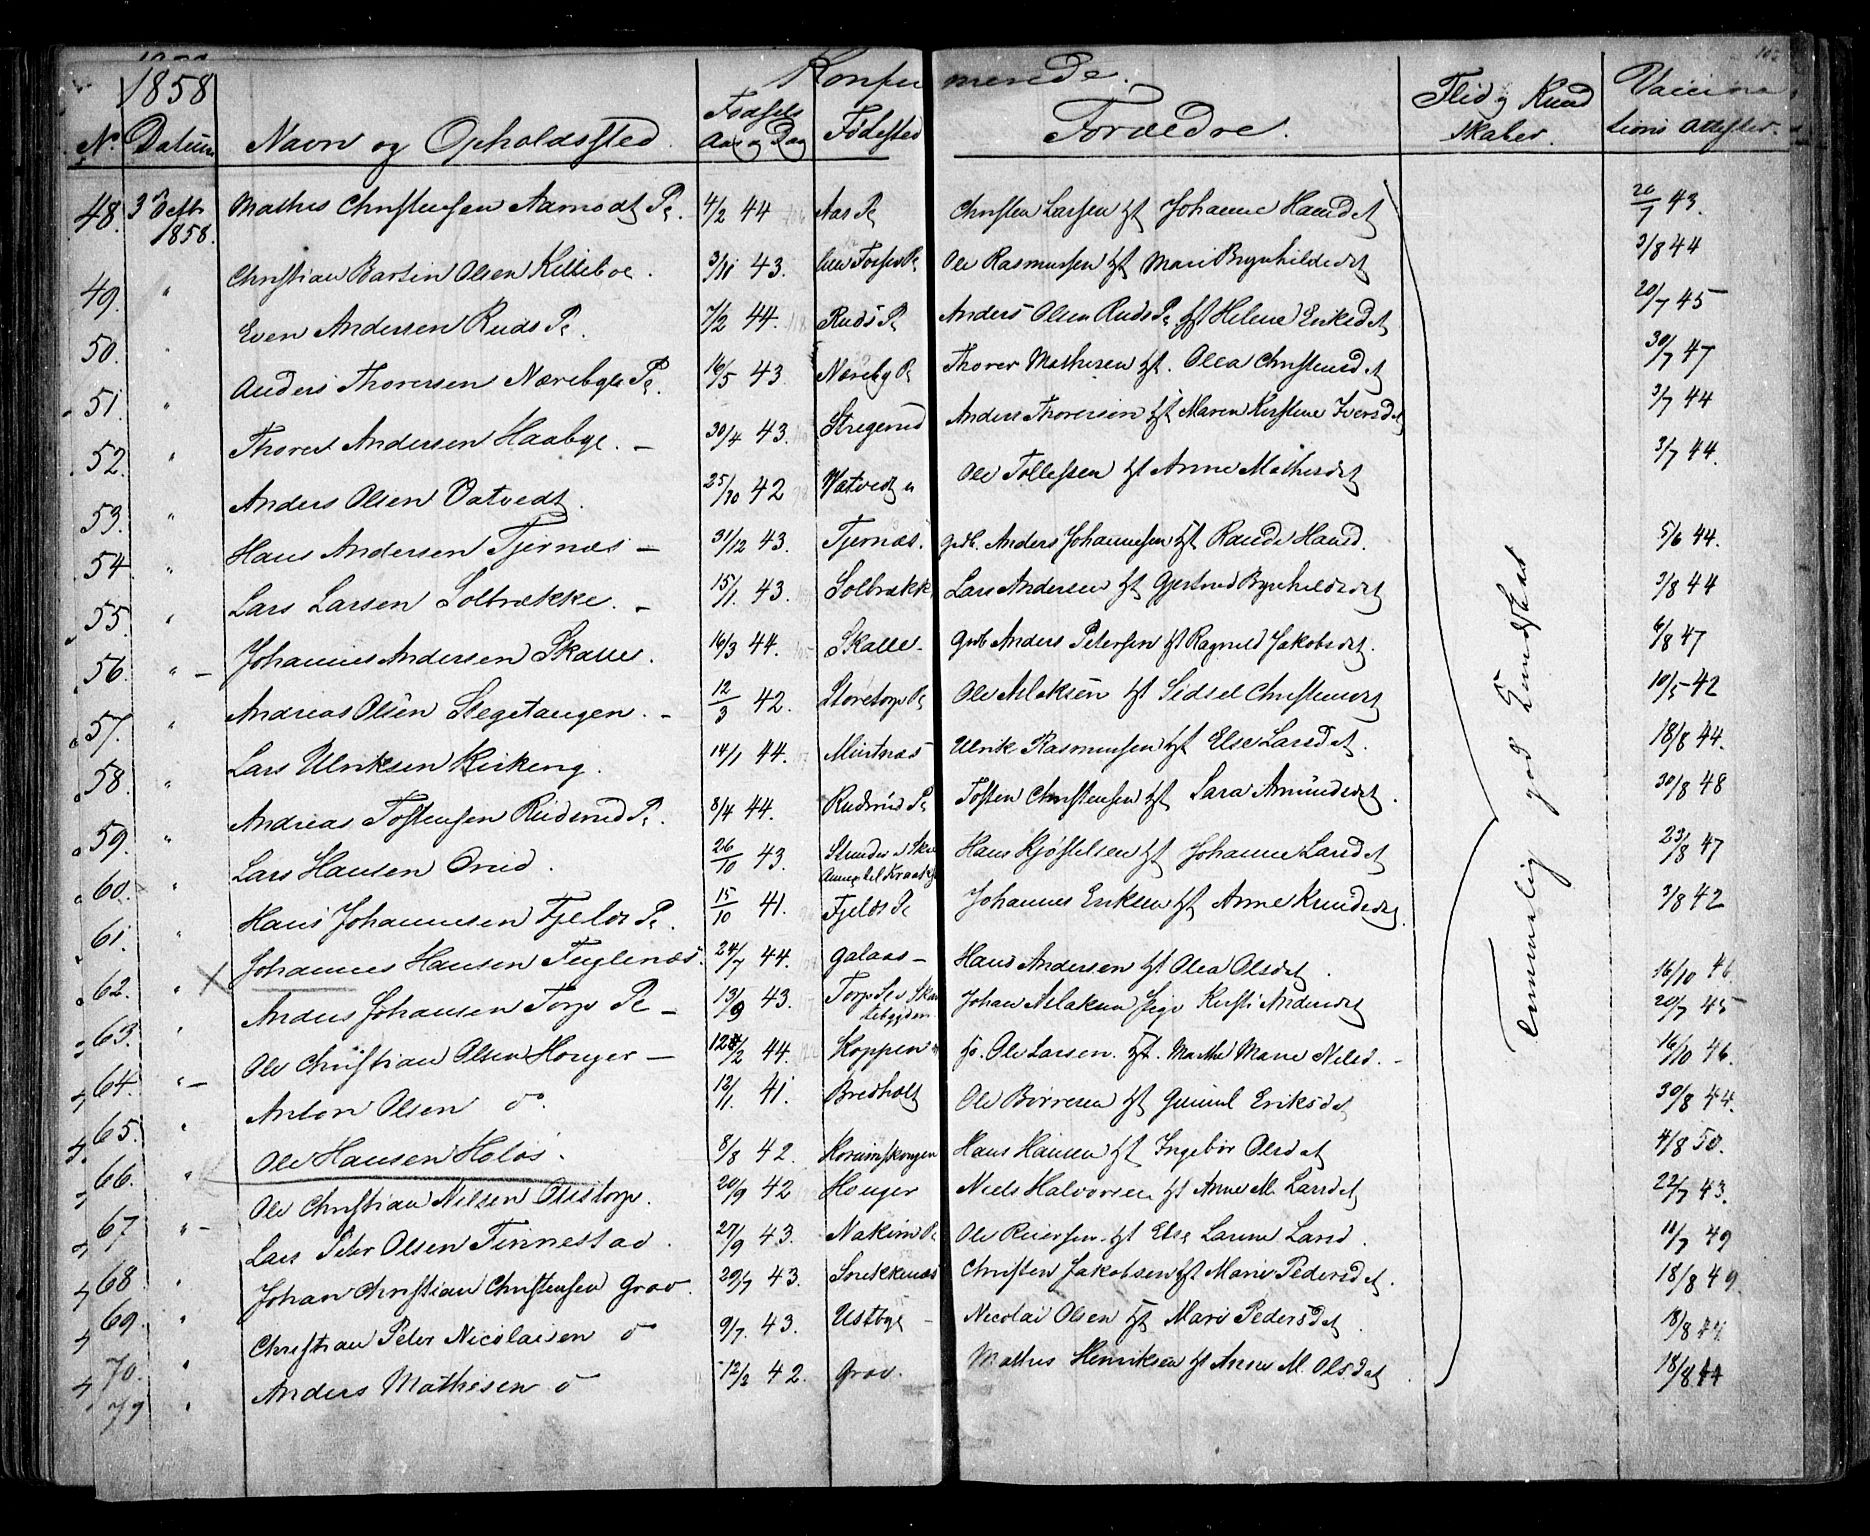 1858 Konfir merede.
No Datum Navn og Opholdssted. Fødsels Aar og Dag Fødested Forældre. Flid og Kund skaber. Vaccina tions Attester.
48. 3 Octbr 1858. Mathis Christensen Aamodt Pl. 4/2 44 Aas Pl Christen Larsen hst Johanne Hansdat 20/7 43.
49. " Christian Bastin Olsen Killeboe. 3/11 43. Ole Rasmussen hst Mari Brynhildsdat 3/8 44
50. " Even Andersen Ruds Pl. 7/2 44. Ruds Pl Anders Olsen Ruds Pl hst Helene Eriksdat 20/7 45
51. " Anders Thoresen Nærebye Pl. 16/5 43. Næreby Pl Thorer Mathisen hst. Olea Christensdat 30/7 47
52. " Thorer Andersen Haabye. - 30/4 43. Stregerud Anders Thoresen hst Maren Kirstine Iversdat 3/7 44
53. " Anders Olsen Vatvedt. 25/10 42 Vatvedt " Ole Tollefsen hst Anne Mathisdat 3/7 44.
54. " Hans Andersen Tjernæs - 31/12 43. Tjernæs. Gdb. Anders Johannesen hst Randi Hansd. 5/6 44.
55. " Lars Larsen Solbrække. - 15/1. 43. Solbrække Lars Andersen hst Gjertrud Brynhildsdat 3/8 44
56. " - Johannes Andersen Skalle. 16/3 44. Skalle - Gdb Anders Petersen hst Ragnild Jakobsdat. 6/8 47
57. " Andreas Olsen Slegetangen. - 12/3 42. Storetorp Pl Ole Aslaksen hst Sidsel Christensdat 10/5 42
58. " Lars Ulriksen Kirkeng. 14/1 44. Ulrik Rasmussen hst Else Larsdat. 18/8 44.
59. " Andreas Tostensen Rudsrud Pl. 8/4 44. Rudsrud Pl Tosten Christensen hst Sara Amundsdat. 30/8 48
60. " Lars Hansen Orud. 26/10 43. Hans Kjøstelsen hst Johanne Larsdat 23/8 47
61. " Hans Johannesen Fjelds Pl. 15/10 41. Fjelds Pl Johannes Eriksen hst Anne Knudsdat. 3/8 42
62. " X Johannes Hansen Fuglenæs. 24/7 44. Galaas - Hans Andersen hst Olea Olsdat. 16/10 46
63. " Anders Johansen Torp Pl - 13/9 43. Torp Johan Aslaksen Pige Kirsti Andersdat 20/7 45
64. " - Ole Christian Olsen Houger - 44. Koppen Ole Larsen. hst. Marthe Marie Nilsd. - 16/10 46.
65. " Anton Olsen do. 12/1. 41. Bredholt Ole Børresen hst Gunnil Eriksdat 30/8 44.
66. Ole Hansen Holøs. 8/8 42. Korumskougen Hans Hansen hst Ingebør Olsdat 4/8 50.
67. " - Ole Christian Nilsen Olstorp. 20/9 42 Houger Niels Halvorsen hst Anne M. Larsdat 22/7 43.
68. " Lars Peter Olsen Finnestad. 27/9 43. Nakim Pl Ole Reiersen. hst Else Larine Larsd. 11/7 49
69. " Johan Christian Christensen Grav. 29/7 43. Snekkenæs Christen Jakobsen hst Marie Pedersdat. 18/8 49.
70. " Christian Peter Nicolaisen do 9/7. 43. Ustbye - Nicolai Olsen hst Mari Pedersdat. 18/8 44
71 " Anders Mathisen do 12/2 42. Grav. Mathis Henriksen hst Anne M. Olsdat. 18/8 44
Temmelig god Kundskab